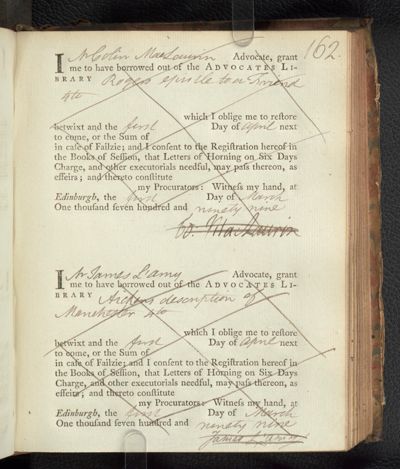 162.
I Mr Colin MacLaurin Advocate, grant
me to have borrowed out of the ADVOCATES LI-
BRARY Rogers epistle to a Friend
4to
which I oblige me to reſtore
betwixt and the first Day of April next
to come, or the Sum of
in caſe of Failzie; and I conſent to the Regiſtration hereof in
the Books of Seſſion, that Letters of Horning on Six Days
Charge, and other executorials needful, may paſs thereon, as
effeirs; and thereto conſtitute
my Procurators: Witneſs my hand, at
Edinburgh, the first Day of March
One thouſand ſeven hundred and ninety nine
MacLaurin
I Mr James L'amy Advocate, grant
me to have borrowed out of the ADVOCATES LI-
BRARY Aickens description of
Manchester 4to
which I oblige me to reſtore
betwixt and the first Day of April next
to come, or the Sum of
in caſe of Failzie; and I conſent to the Regiſtration hereof in
the Books of Seſſion, that Letters of Horning on Six Days
Charge, and other executorials needful, may paſs thereon, as
effeirs; and thereto conſtitute
my Procurators: Witneſs my hand, at
Edinburgh, the first Day of March
One thouſand ſeven hundred and ninety nine
James L'amy